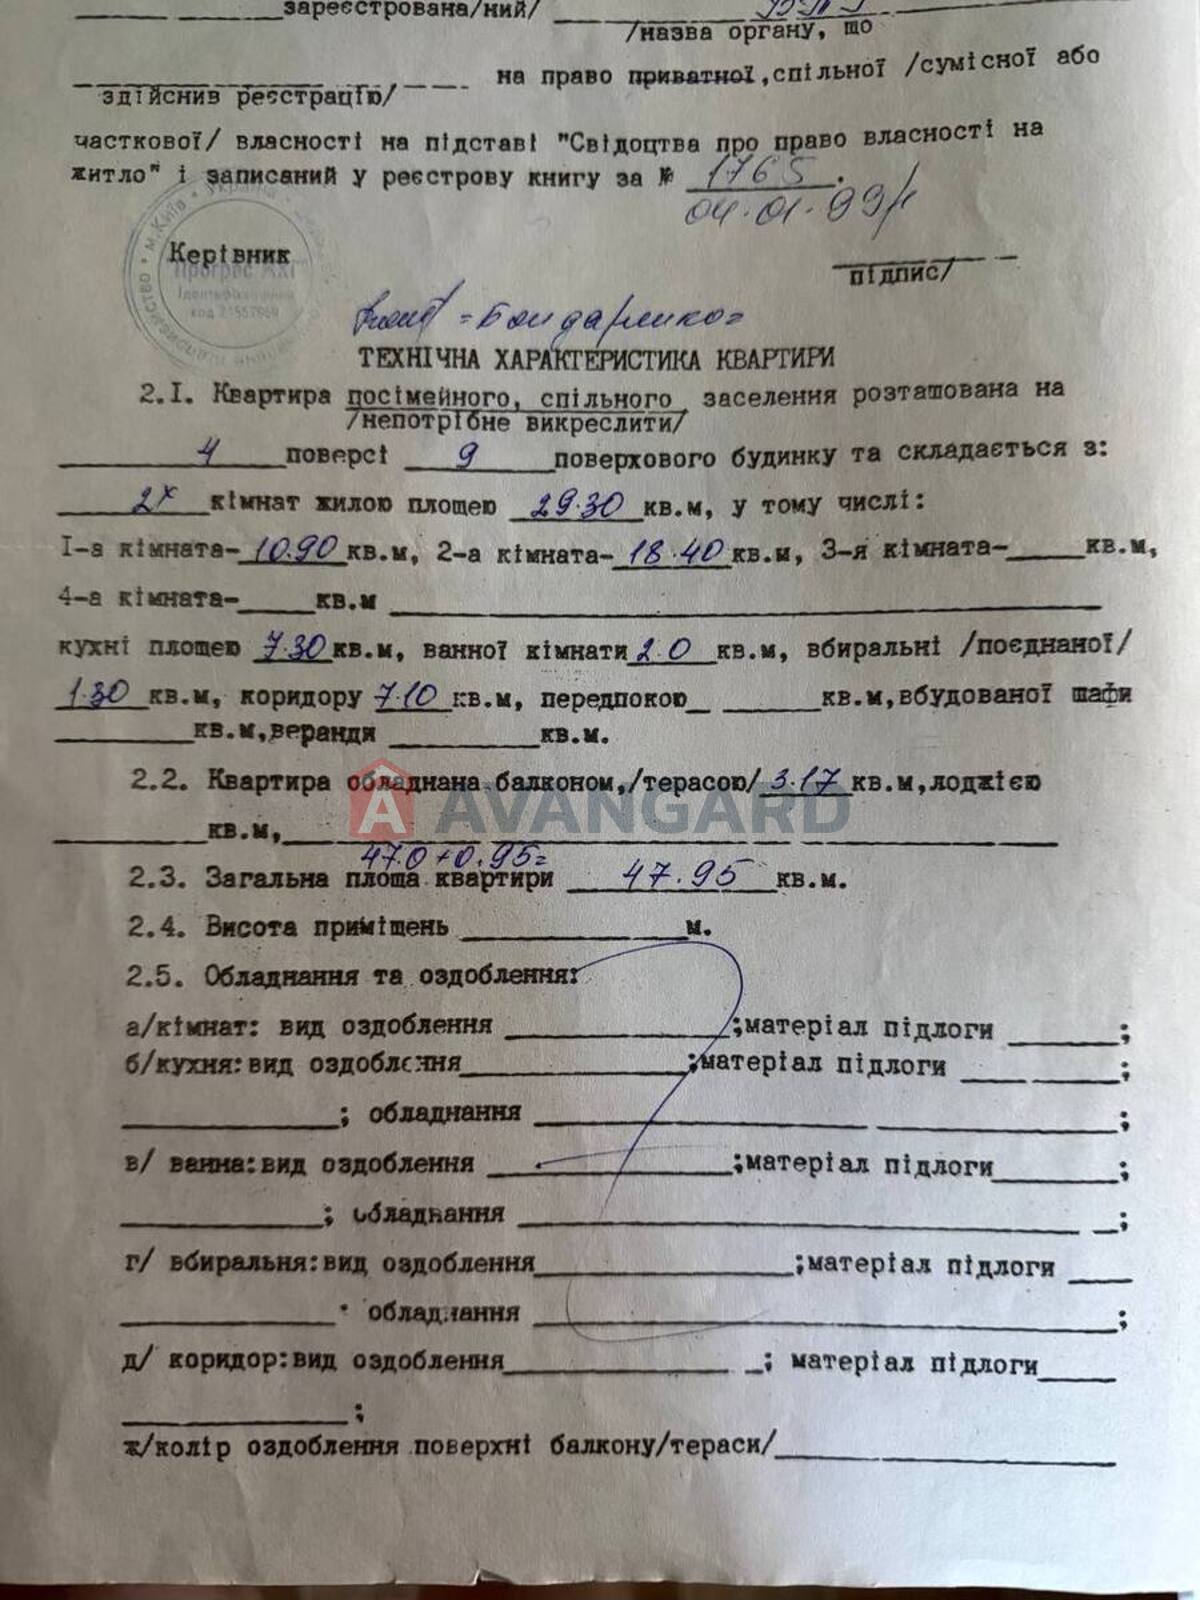 зареєстрована/ний/
/назва органу, що
на право приватної,спільної /сумісної або
здійснив реєстрацію/
часткової/ власності на підставі "Свідоцтва про право власності на
житло" і записаний у реєстрову книгу за № 1765.
04.01.99
Керівник
підпис/
=Бондаренко=
ТЕХНІЧНА ХАРАКТЕРИСТИКА КВАРТИРИ
2.I. Квартира посімейного, спільного заселення розташована на
/непотрібне викреслити/
4 поверсі 9 поверхового будинку та складається з:
2х кімнат жилою площею 29.30 кв.м, у тому числі:
I-а кімната- 10.90 кв.м, 2-а кімната- 18.40 кв.м, 3-я кімната- кв.м,
4-а кімната- кв.м
кухні площею 7.30 кв.м, ванної кімнати 2.0 кв.м, вбиральні /поєднаної/
1.30 кв.м, коридору 7.10 кв.м, передпокою кв.м,вбудованої шафи
кв.м,веранди кв.м.
2.2. Квартира обладнана балконом,/терасою/ 3.17 кв.м,лоджією
AVANGARD
кв.м,
47.0+0.95=
2.3. Загальна площа квартири 47.95 кв.м.
2.4. Висота приміщень м.
2.5. Обладнання та оздоблення:
а/кімнат: вид оздоблення ;матеріал підлоги ;
б/кухня:вид оздоблення ;матеріал підлоги ;
; обладнання ;
в/ ванна:вид оздоблення ;матеріал підлоги ;
; обладнання ;
г/ вбиральня:вид оздоблення ;матеріал підлоги
обладнання ;
д/ коридор:вид оздоблення ; матеріал підлоги
;
ж/колір оздоблення поверхні балкону/тераси/